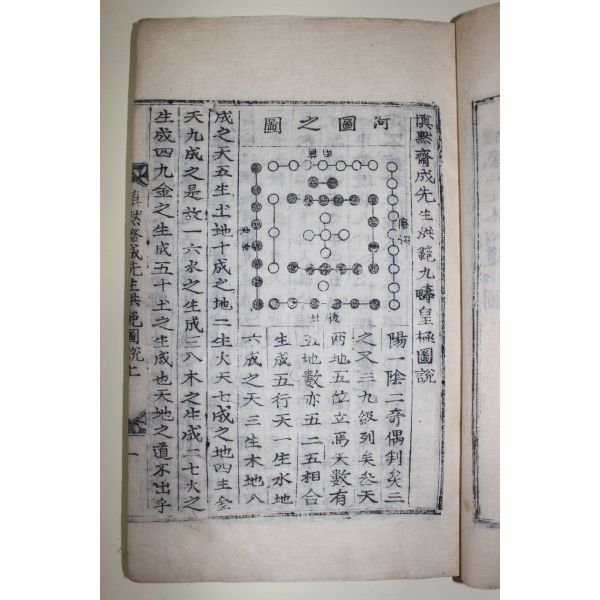 愼默齋成先生洪範九疇皇極圖說
河圖之圖
陽一陰二奇偶判矣三
之又三九級列矣叅天
兩地五位立焉天數有
五地數亦五二五相合
生成五行天一生水地
六成之天三生木地八
成之天五生土地十成之地二生火天七成之地四生金
天九成之是故一六水之生成三八木之生成二七火之
生成四九金之生成五十土之生成也天地之道不出乎
愼默齋成先生洪範圖說上
一
後